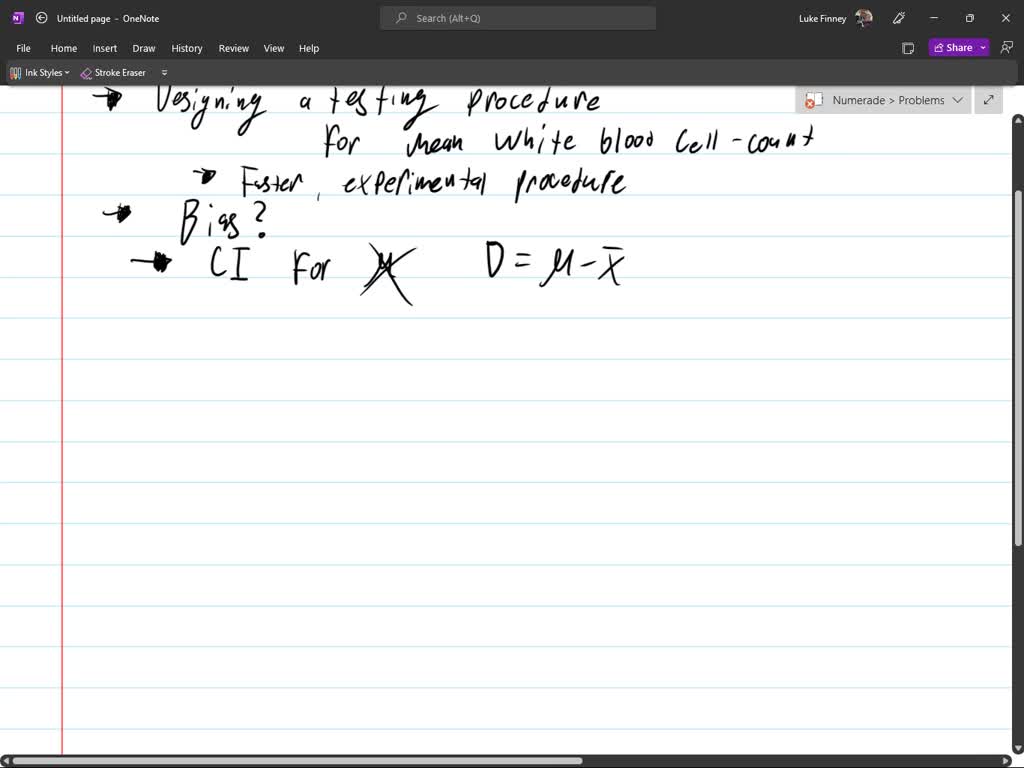 Untitled page - OneNote
Search (Alt+Q)
Luke Finney
File Home Insert Draw History Review View Help
Share
Ink Styles Stroke Eraser
Numerade > Problems
Designing a testing procedure
for mean white blood cell-count
Faster, experimental procedure
Bias?
CI For μ D = μ - x̄